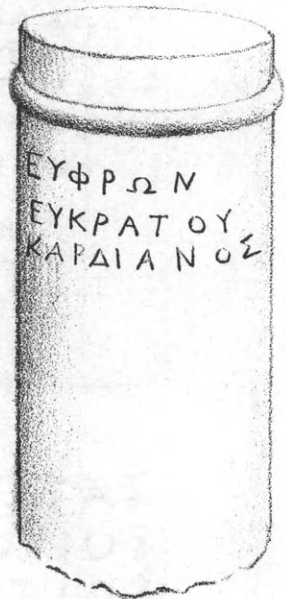 ΕΥΦΡΩΝ
ΕΥΚΡΑΤΟΥ
ΚΑΡΔΙΑΝΟΣ